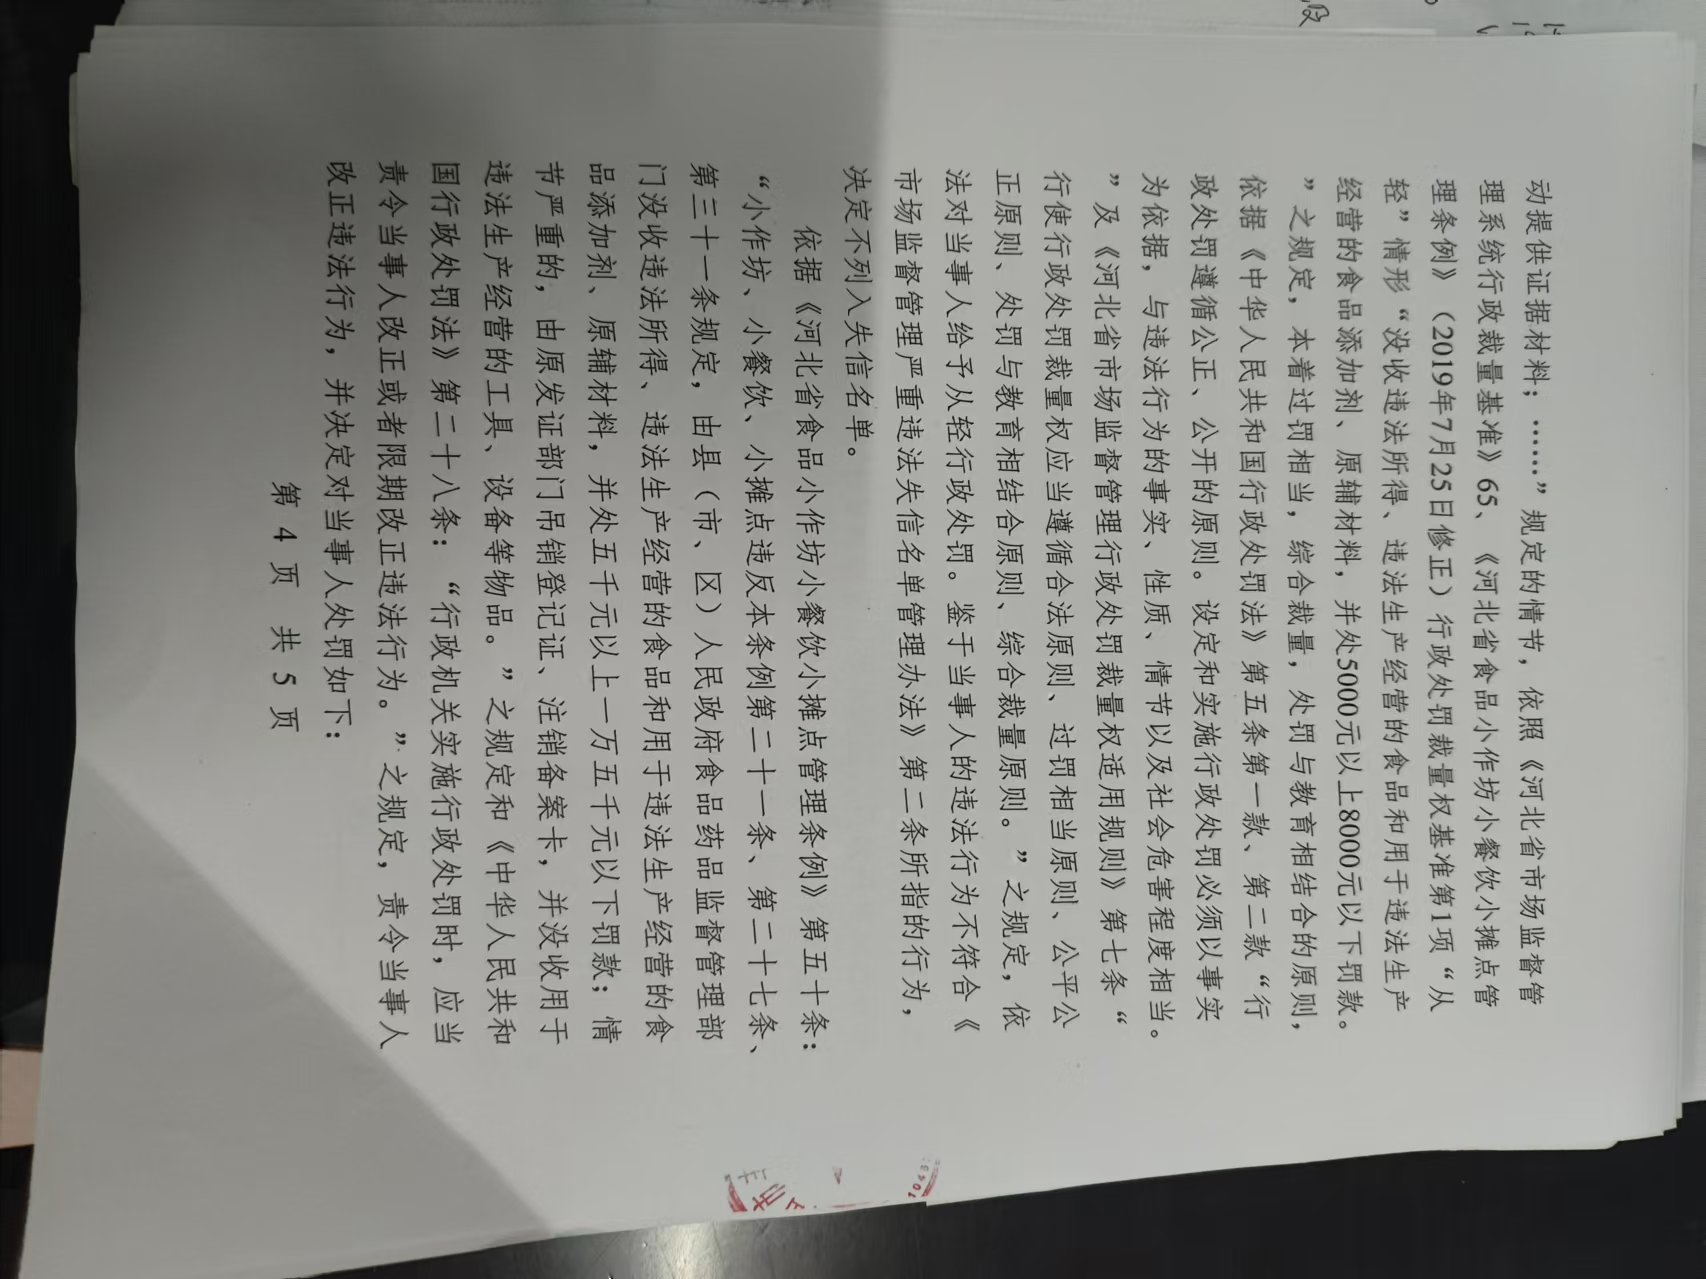 动提供证据材料；……”规定的情节，依照《河北省市场监督管
理系统行政裁量基准》65、《河北省食品小作坊小餐饮小摊点管
理条例》（2019年7月25日修正）行政处罚裁量权基准第1项“从
轻”情形“没收违法所得、违法生产经营的食品和用于违法生产
经营的食品添加剂、原辅材料，并处5000元以上8000元以下罚款。
”之规定，本着过罚相当，综合裁量，处罚与教育相结合的原则，
依据《中华人民共和国行政处罚法》第五条第一款、第二款“行
政处罚遵循公正、公开的原则。设定和实施行政处罚必须以事实
为依据，与违法行为的事实、性质、情节以及社会危害程度相当。
”及《河北省市场监督管理行政处罚裁量权适用规则》第七条“
行使行政处罚裁量权应当遵循合法原则、过罚相当原则、公平公
正原则、处罚与教育相结合原则、综合裁量原则。”之规定，依
法对当事人给予从轻行政处罚。鉴于当事人的违法行为不符合《
市场监督管理严重违法失信名单管理办法》第二条所指的行为，
决定不列入失信名单。
依据《河北省食品小作坊小餐饮小摊点管理条例》第五十条：
“小作坊、小餐饮、小摊点违反本条例第二十一条、第二十七条、
第三十一条规定，由县（市、区）人民政府食品药品监督管理部
门没收违法所得、违法生产经营的食品和用于违法生产经营的食
品添加剂、原辅材料，并处五千元以上一万五千元以下罚款；情
节严重的，由原发证部门吊销登记证、注销备案卡，并没收用于
违法生产经营的工具、设备等物品。”之规定和《中华人民共和
国行政处罚法》第二十八条：“行政机关实施行政处罚时，应当
责令当事人改正或者限期改正违法行为。”之规定，责令当事人
改正违法行为，并决定对当事人处罚如下：
第 4 页 共 5 页